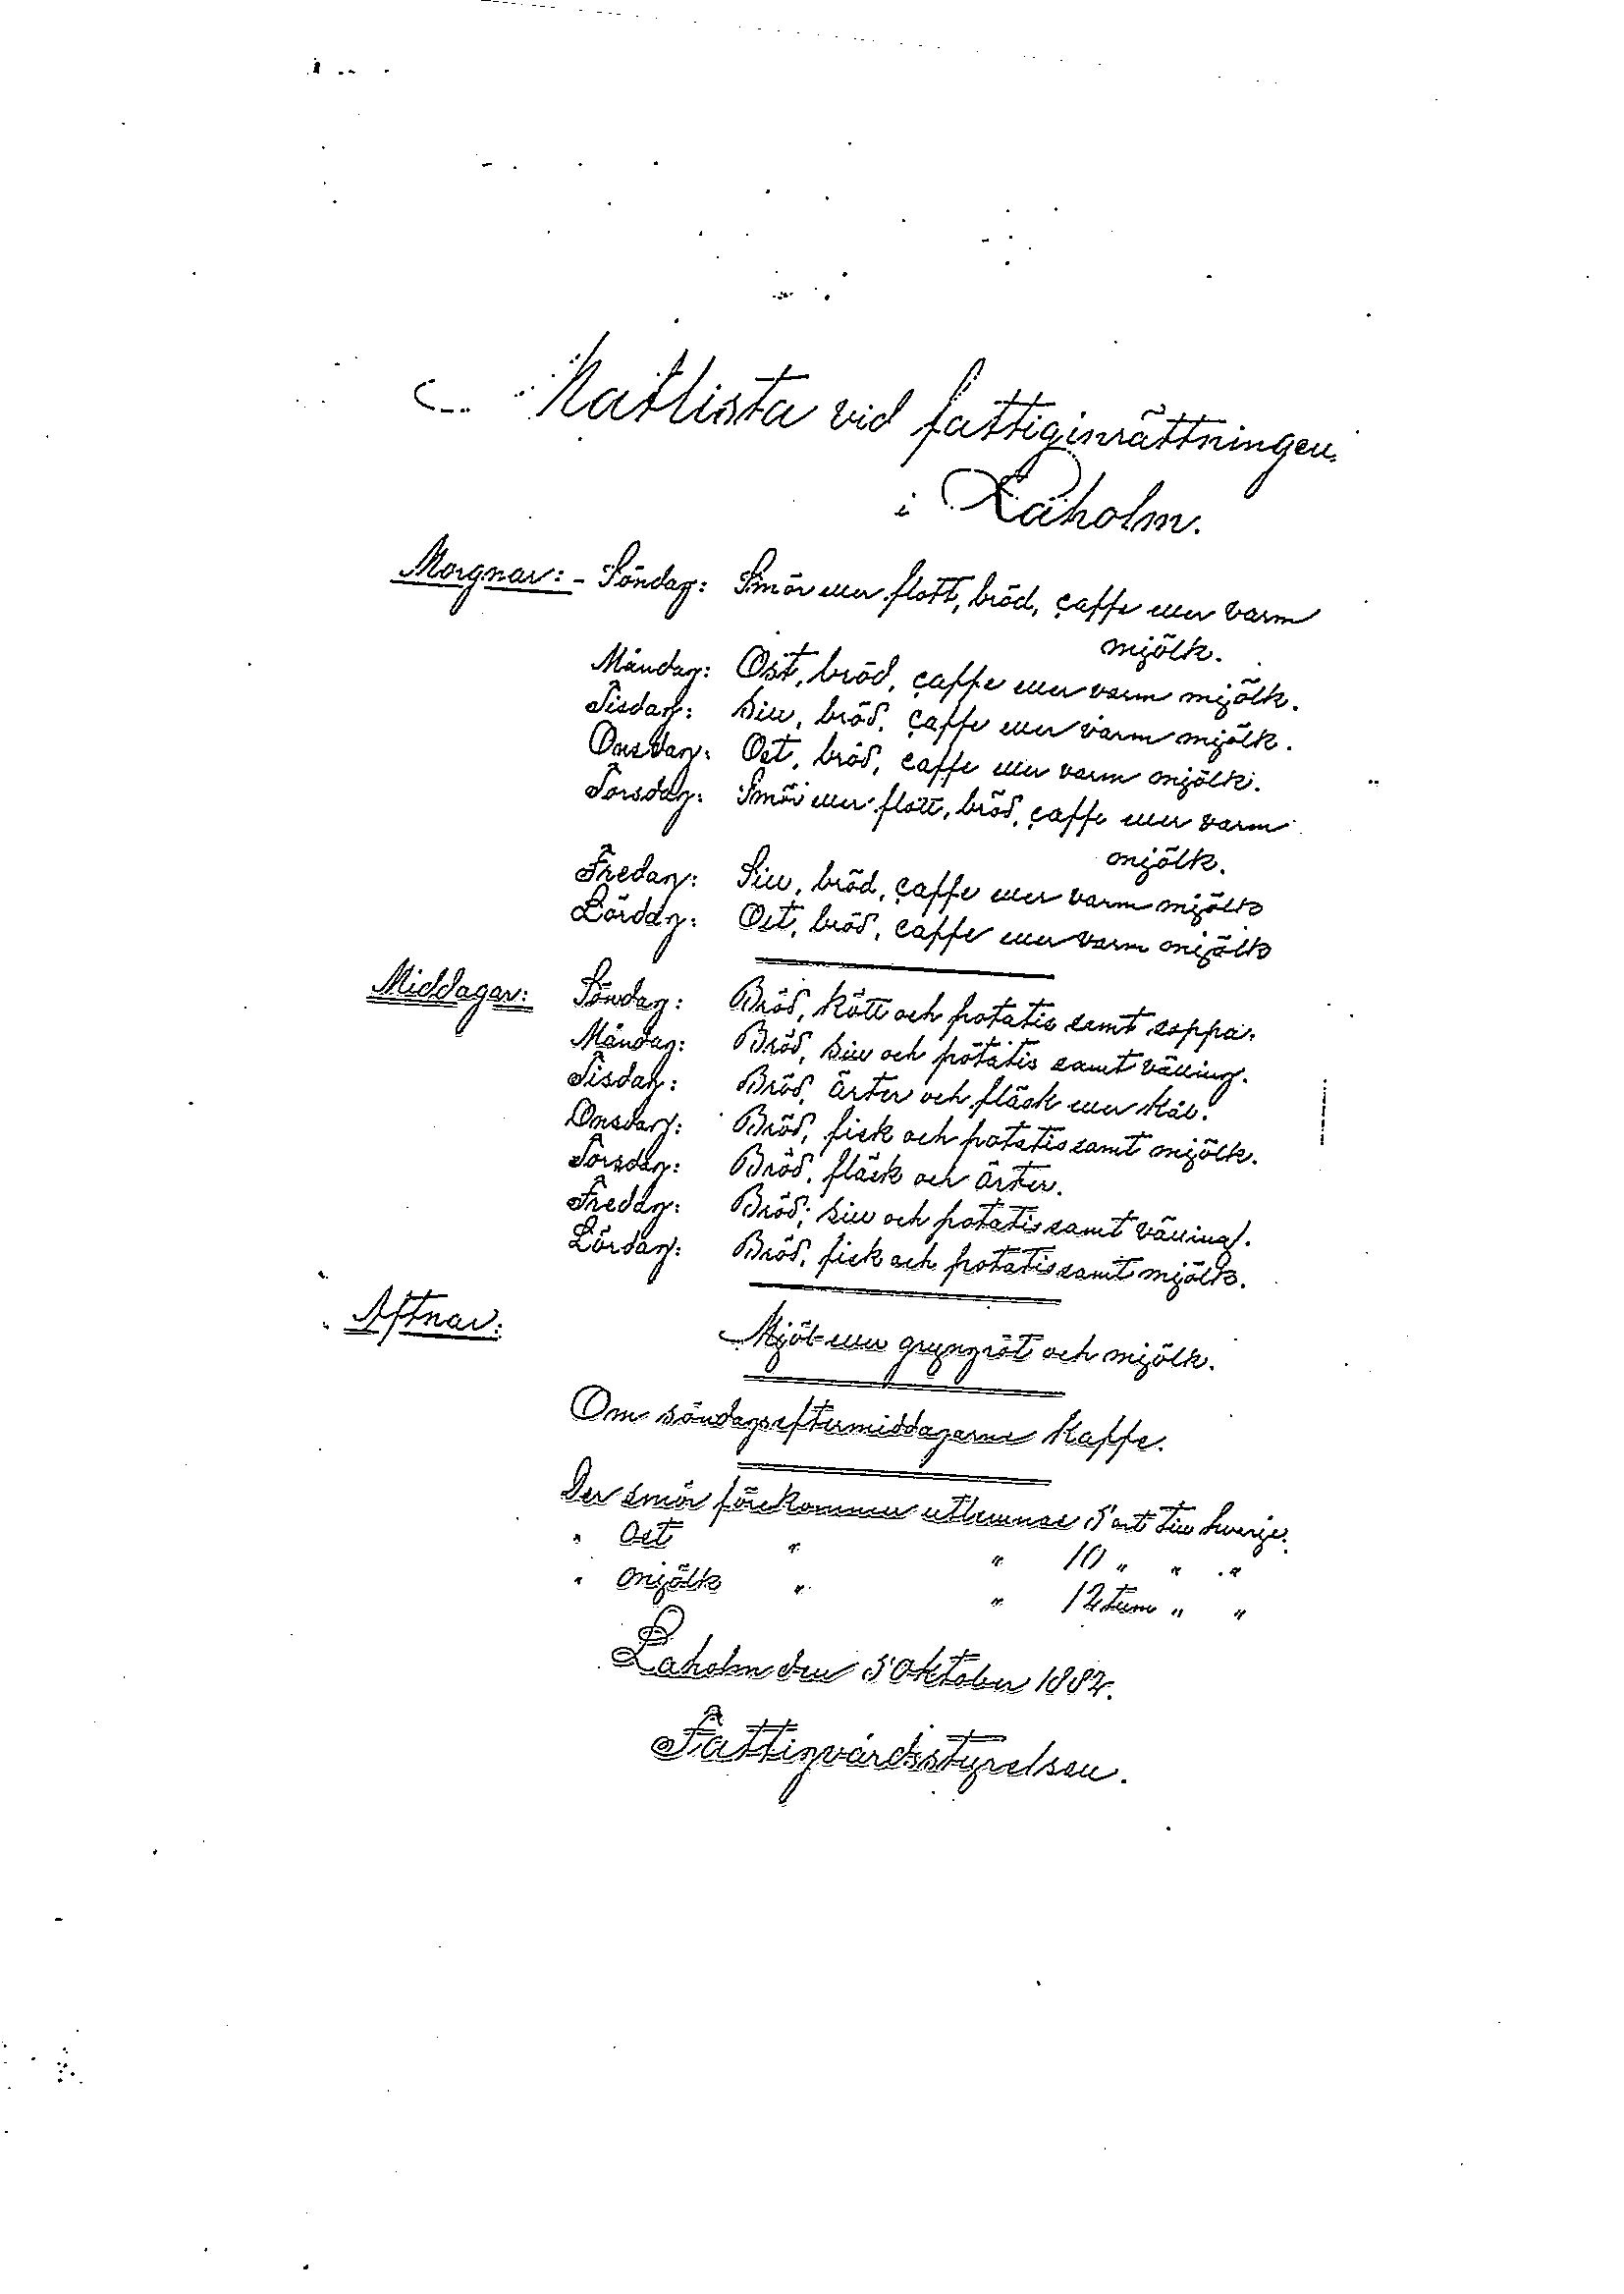 Matlista vid fattiginrättningen
i Laholm.
Morgnar: - Söndag: Smör eller flott, bröd, caffe eller varm
mjölk.
Måndag: Ost, bröd, caffe eller varm mjölk.
Tisdag: Sill, bröd, caffe eller varm mjölk.
Onsdag: Ost, bröd, caffe eller varm mjölk.
Torsdag: Smör eller flott, bröd, caffe eller varm
mjölk.
Fredag: Sill, bröd, caffe eller varm mjölk
Lördag: Ost, bröd, caffe eller varm mjölk
Middagar: Söndag: Bröd, kött och potatis samt soppa.
Måndag: Bröd, sill och potatis samt välling.
Tisdag: Bröd, ärter och fläsk eller kål.
Onsdag: Bröd, fisk och potatis samt mjölk.
Torsdag: Bröd, fläsk och ärter.
Fredag: Bröd, sill och potatis samt välling.
Lördag: Bröd, fisk och potatis samt mjölk.
Aftnar: Mjöl- eller gryngröt och mjölk.
Om söndagseftermiddagarne kaffe.
Der smör förekommer utlemnas 5 ort till hwarje.
" Ost " " 10 " " "
" mjölk " " 12 tum " "
Laholm den 5 Oktober 1882.
Fattigvårdsstyrelsen.